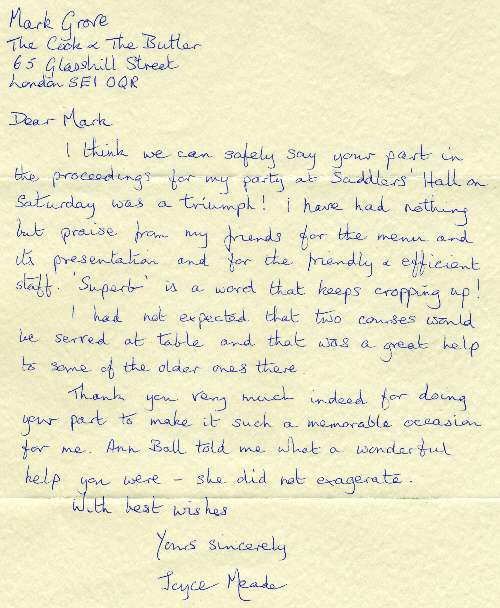 Mark Grove
The Cook & The Butler
65 Glasshill Street
London SE1 0QR
Dear Mark
I think we can safely say your part in
the proceedings for my party at Saddlers' Hall on
Saturday was a triumph! I have had nothing
but praise from my friends for the menu and
its presentation and for the friendly & efficient
staff. 'Superb' is a word that keeps cropping up!
I had not expected that two courses would
be served at table and that was a great help
to some of the older ones there
Thank you very much indeed for doing
your part to make it such a memorable occasion
for me. Ann Ball told me what a wonderful
help you were – she did not exagerate.
With best wishes
Yours sincerely
Joyce Meade